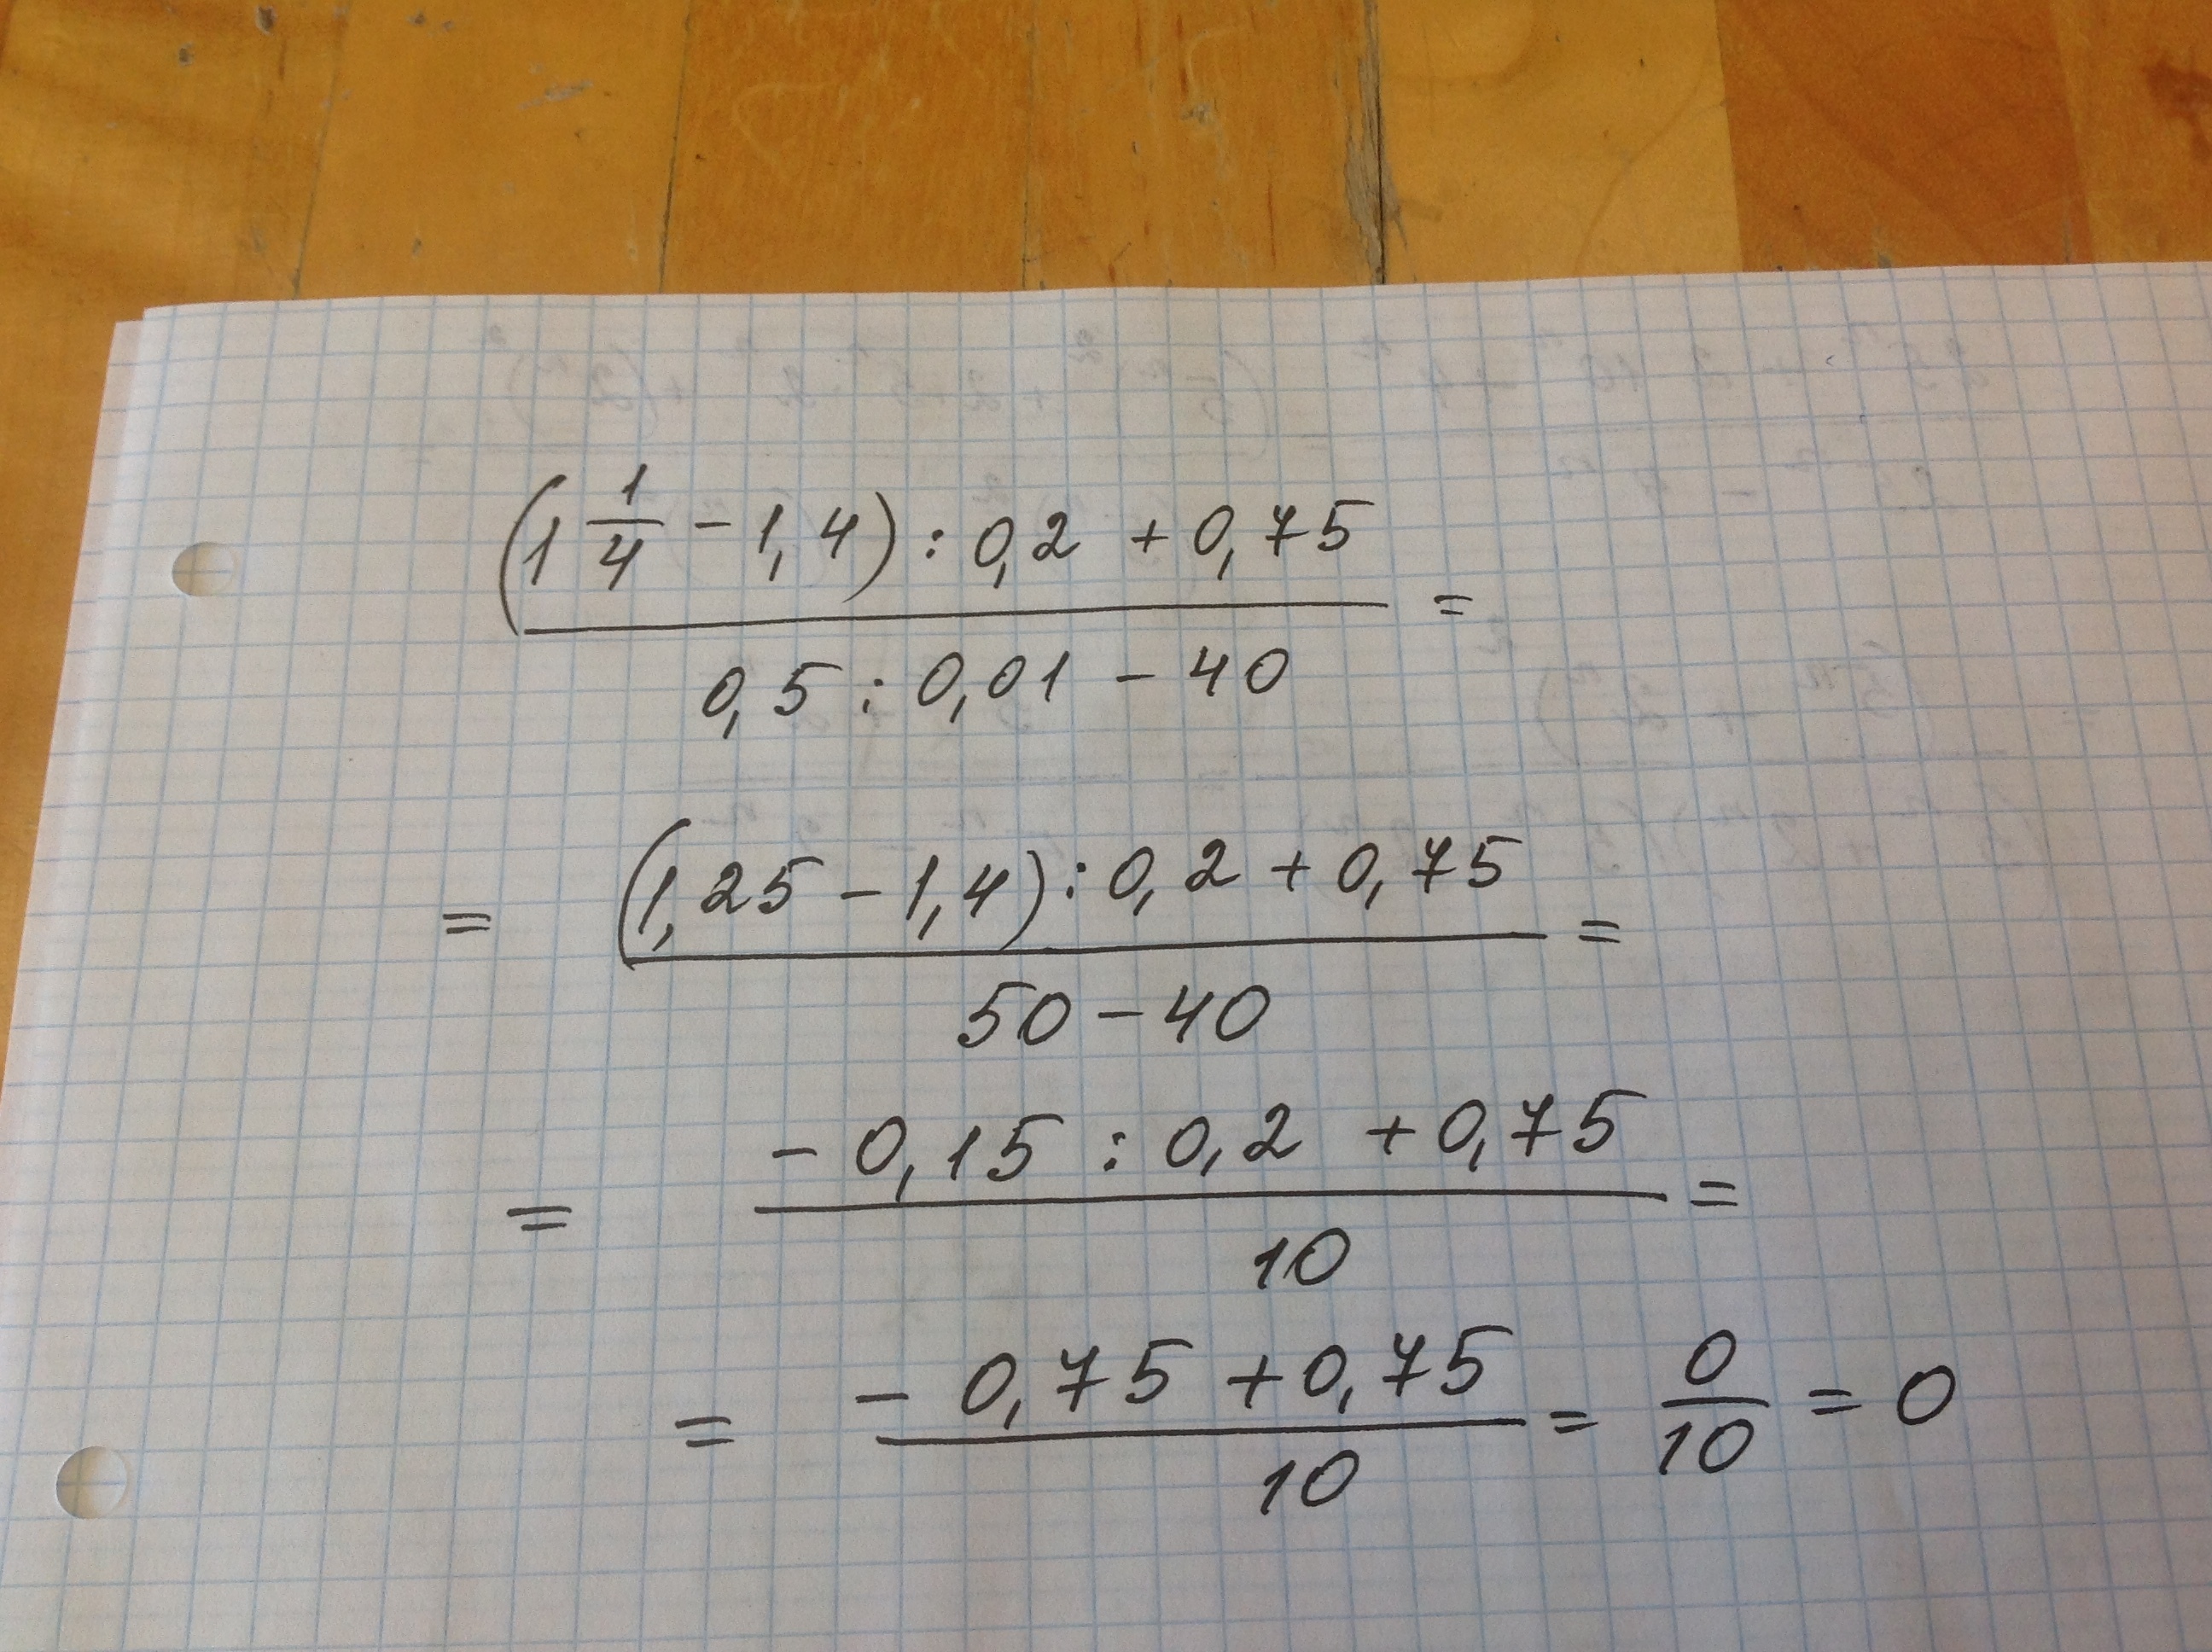 (1 1/4 - 1,4) : 0,2 + 0,75
=
0,5 : 0,01 - 40
= (1,25 - 1,4) : 0,2 + 0,75 =
50 - 40
= - 0,15 : 0,2 + 0,75 =
10
= - 0,75 + 0,75 = 0 = 0
10 10